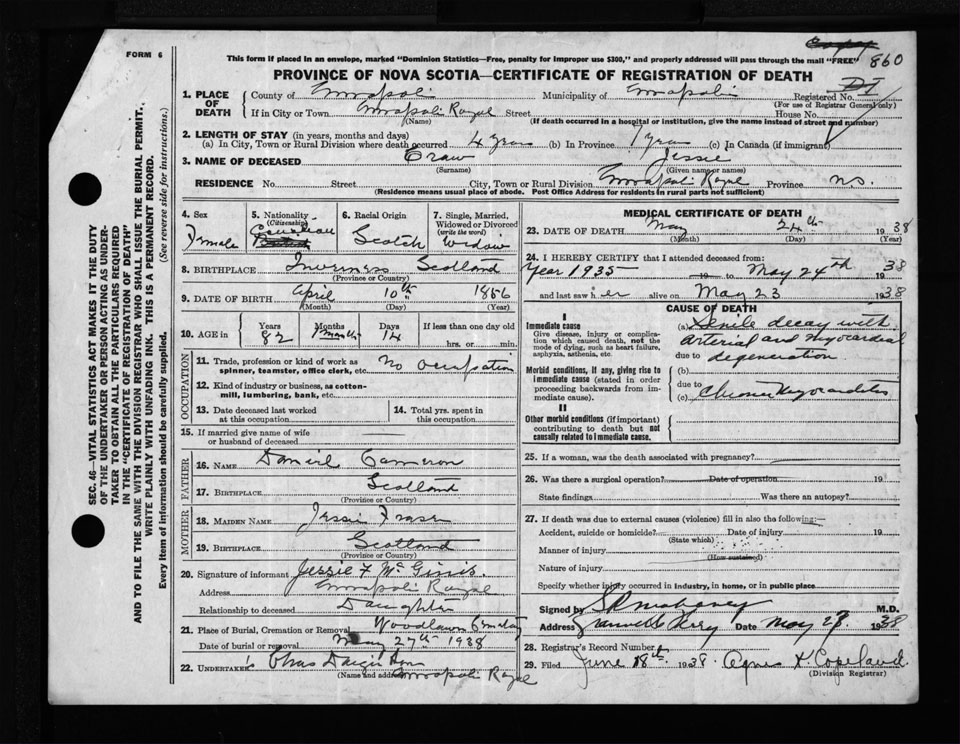 FORM 6
Copy
This form if placed in an envelope, marked "Dominion Statistics—Free, penalty for improper use $300," and properly addressed will pass through the mail "FREE" 860
PROVINCE OF NOVA SCOTIA—CERTIFICATE OF REGISTRATION OF DEATH
1. PLACE OF DEATH County of Annapolis Municipality of Annapolis Registered No.
(For use of Registrar General only)
If in City or Town Annapolis Royal Street House No.
(Name) (If death occurred in a hospital or institution, give the name instead of street and number)
2. LENGTH OF STAY (in years, months and days)
(a) In City, Town or Rural Division where death occurred 4 years (b) In Province 7 years (c) In Canada (if immigrant)
3. NAME OF DECEASED Oraw Jessie
(Surname) (Given name or names)
RESIDENCE No. Street City, Town or Rural Division Annapolis Royal Province N.S.
(Residence means usual place of abode. Post Office Address for residents in rural parts not sufficient)
4. Sex Female
5. Nationality (Citizenship) Canadian
6. Racial Origin Scotch
7. Single, Married, Widowed or Divorced (write the word) Widow
8. BIRTHPLACE Inverness Scotland
(Province or Country)
9. DATE OF BIRTH April 10th 1856
(Month) (Day) (Year)
10. AGE in Years 82 Months Days 14 If less than one day old hrs. or min.
OCCUPATION
11. Trade, profession or kind of work as spinner, teamster, office clerk, etc. No occupation
12. Kind of industry or business, as cotton-mill, lumbering, bank, etc.
13. Date deceased last worked at this occupation
14. Total yrs. spent in this occupation
15. If married give name of wife or husband of deceased
FATHER
16. NAME Daniel Cameron
17. BIRTHPLACE Scotland
(Province or Country)
MOTHER
18. MAIDEN NAME Jessie Fraser
19. BIRTHPLACE Scotland
(Province or Country)
20. Signature of informant Jessie F McGinis.
Address Annapolis Royal
Relationship to deceased Daughter
21. Place of Burial, Cremation or Removal Woodlawn Cemetery
Date of burial or removal May 27th 1938
22. UNDERTAKER'S Chas
(Name and address) Annapolis Royal
MEDICAL CERTIFICATE OF DEATH
23. DATE OF DEATH May 24th 1938
(Month) (Day) (Year)
24. I HEREBY CERTIFY that I attended deceased from:
Year 1935 19 to May 24th 1938
and last saw her alive on May 23 1938
CAUSE OF DEATH
I
Immediate cause
Give disease, injury or complication which caused death, not the mode of dying, such as heart failure, asphyxia, asthenia, etc.
(a) Senile decay with
Arterial and Myocardial
due to degeneration
Morbid conditions, if any, giving rise to immediate cause (stated in order proceeding backwards from immediate cause).
(b)
due to
(c) Chronic Myocarditis
II
Other morbid conditions (if important) contributing to death but not causally related to immediate cause.
25. If a woman, was the death associated with pregnancy?
26. Was there a surgical operation? Date of operation 19
State findings Was there an autopsy?
27. If death was due to external causes (violence) fill in also the following:—
Accident, suicide or homicide? Date of injury 19
(State which)
Manner of injury
(How sustained)
Nature of injury
Specify whether injury occurred in industry, in home, or in public place
Signed by Mahoney M.D.
Address Granville Ferry Date May 27 1938
28. Registrar's Record Number
29. Filed June 18th 1938. Agnes K. Copeland
(Division Registrar)
SEC. 46—VITAL STATISTICS ACT MAKES IT THE DUTY
OF THE UNDERTAKER OR PERSON ACTING AS UNDER-
TAKER TO OBTAIN ALL THE PARTICULARS REQUIRED
IN THE "CERTIFICATE OF REGISTRATION OF DEATH"
AND TO FILE THE SAME WITH THE DIVISION REGISTRAR WHO SHALL ISSUE THE BURIAL PERMIT.
WRITE PLAINLY WITH UNFADING INK. THIS IS A PERMANENT RECORD.
Every item of information should be carefully supplied. (See reverse side for instructions.)